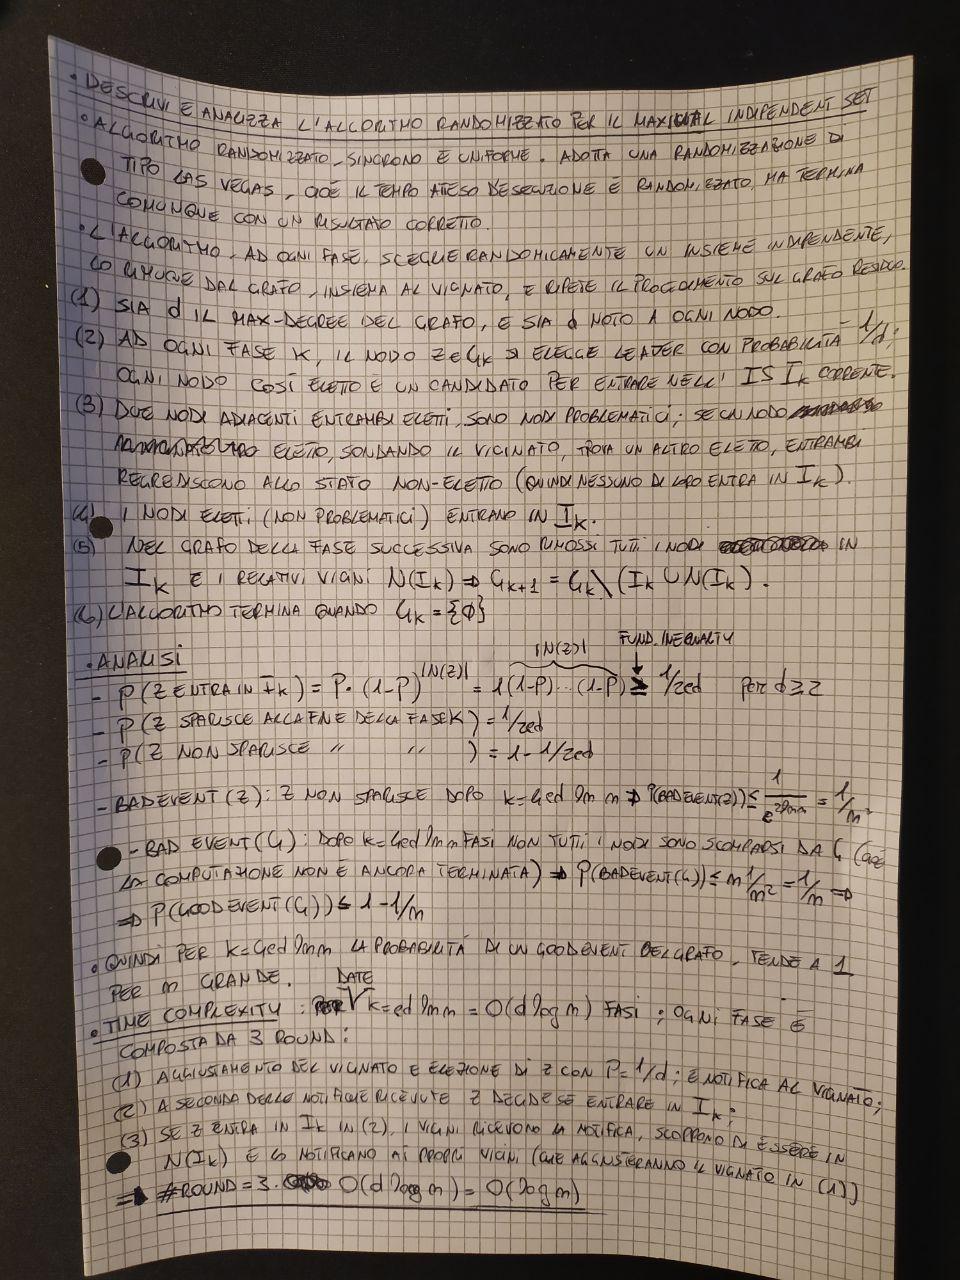 • DESCRIVI E ANALIZZA L'ALGORITMO RANDOMIZZATO PER IL MAXIMAL INDIPENDENT SET
• ALGORITMO RANDOMIZZATO, SINCRONO E UNIFORME. ADOTTA UNA RANDOMIZZAZIONE DI
TIPO LAS VEGAS, CIOÈ IL TEMPO ATTESO D'ESECUZIONE È RANDOMIZZATO, MA TERMINA
COMUNQUE CON UN RISULTATO CORRETTO.
• L'ALGORITMO, AD OGNI FASE, SCEGLIE RANDOMICAMENTE UN INSIEME INDIPENDENTE,
LO RIMUOVE DAL GRAFO, INSIEMA AL VICINATO, E RIPETE IL PROCEDIMENTO SUL GRAFO RESIDUO.
(1) SIA d IL MAX-DEGREE DEL GRAFO, E SIA d NOTO A OGNI NODO.
(2) AD OGNI FASE K, IL NODO Z∈Gk SI ELEGGE LEADER CON PROBABILITÀ 1/d;
OGNI NODO COSÌ ELETTO È UN CANDIDATO PER ENTRARE NELL' IS Ik CORRENTE.
(3) DUE NODI ADIACENTI ENTRAMBI ELETTI, SONO NODI PROBLEMATICI; SE UN NODO
ELETTO, SONDANDO IL VICINATO, TROVA UN ALTRO ELETTO, ENTRAMBI
REGREDISCONO ALLO STATO NON-ELETTO (QUINDI NESSUNO DI LORO ENTRA IN Ik).
(4) I NODI ELETTI (NON PROBLEMATICI) ENTRANO IN Ik.
(5) NEL GRAFO DELLA FASE SUCCESSIVA SONO RIMOSSI TUTTI I NODI IN
Ik E I RELATIVI VICINI N(Ik) ⇒ Gk+1 = Gk \ (Ik ∪ N(Ik)).
(6) L'ALGORITMO TERMINA QUANDO Gk = {∅}
• ANALISI
|N(Z)| FUND. INEQUALITY
- P(Z ENTRA IN Ik) = P·(1-P)^|N(Z)| = 1(1-P)...(1-P) ≥ 1/2ed per d≥2
- P(Z SPARISCE ALLA FINE DELLA FASE K) = 1/2ed
- P(Z NON SPARISCE " " ) = 1-1/2ed
- BAD EVENT(Z): Z NON SPARISCE DOPO k=4ed ln n ⇒ P(BADEVENT(Z)) ≤ 1/e^2lnn = 1/n²
- BAD EVENT(G): DOPO k=4ed ln n FASI NON TUTTI I NODI SONO SCOMPARSI DA G (CIOÈ
LA COMPUTAZIONE NON È ANCORA TERMINATA) ⇒ P(BADEVENT(G)) ≤ n 1/n² = 1/n ⇒
⇒ P(GOODEVENT(G)) ≤ 1-1/n
• QUINDI PER k=4ed ln n LA PROBABILITÀ DI UN GOODEVENT DEL GRAFO, TENDE A 1
PER n GRANDE.
DATE
• TIME COMPLEXITY: k=ed ln n = O(d log n) FASI; OGNI FASE È
COMPOSTA DA 3 ROUND:
(1) AGGIUSTAMENTO DEL VICINATO E ELEZIONE DI Z CON P=1/d; E NOTIFICA AL VICINATO;
(2) A SECONDA DELLE NOTIFICHE RICEVUTE Z DECIDE SE ENTRARE IN Ik;
(3) SE Z ENTRA IN Ik IN (2), I VICINI RICEVONO LA NOTIFICA, SCOPRONO DI ESSERE IN
N(Ik) E LO NOTIFICANO AI PROPRI VICINI (CHE AGGIUSTERANNO IL VICINATO IN (1))
⇒ #ROUND = 3· O(d log n) = O(log n)